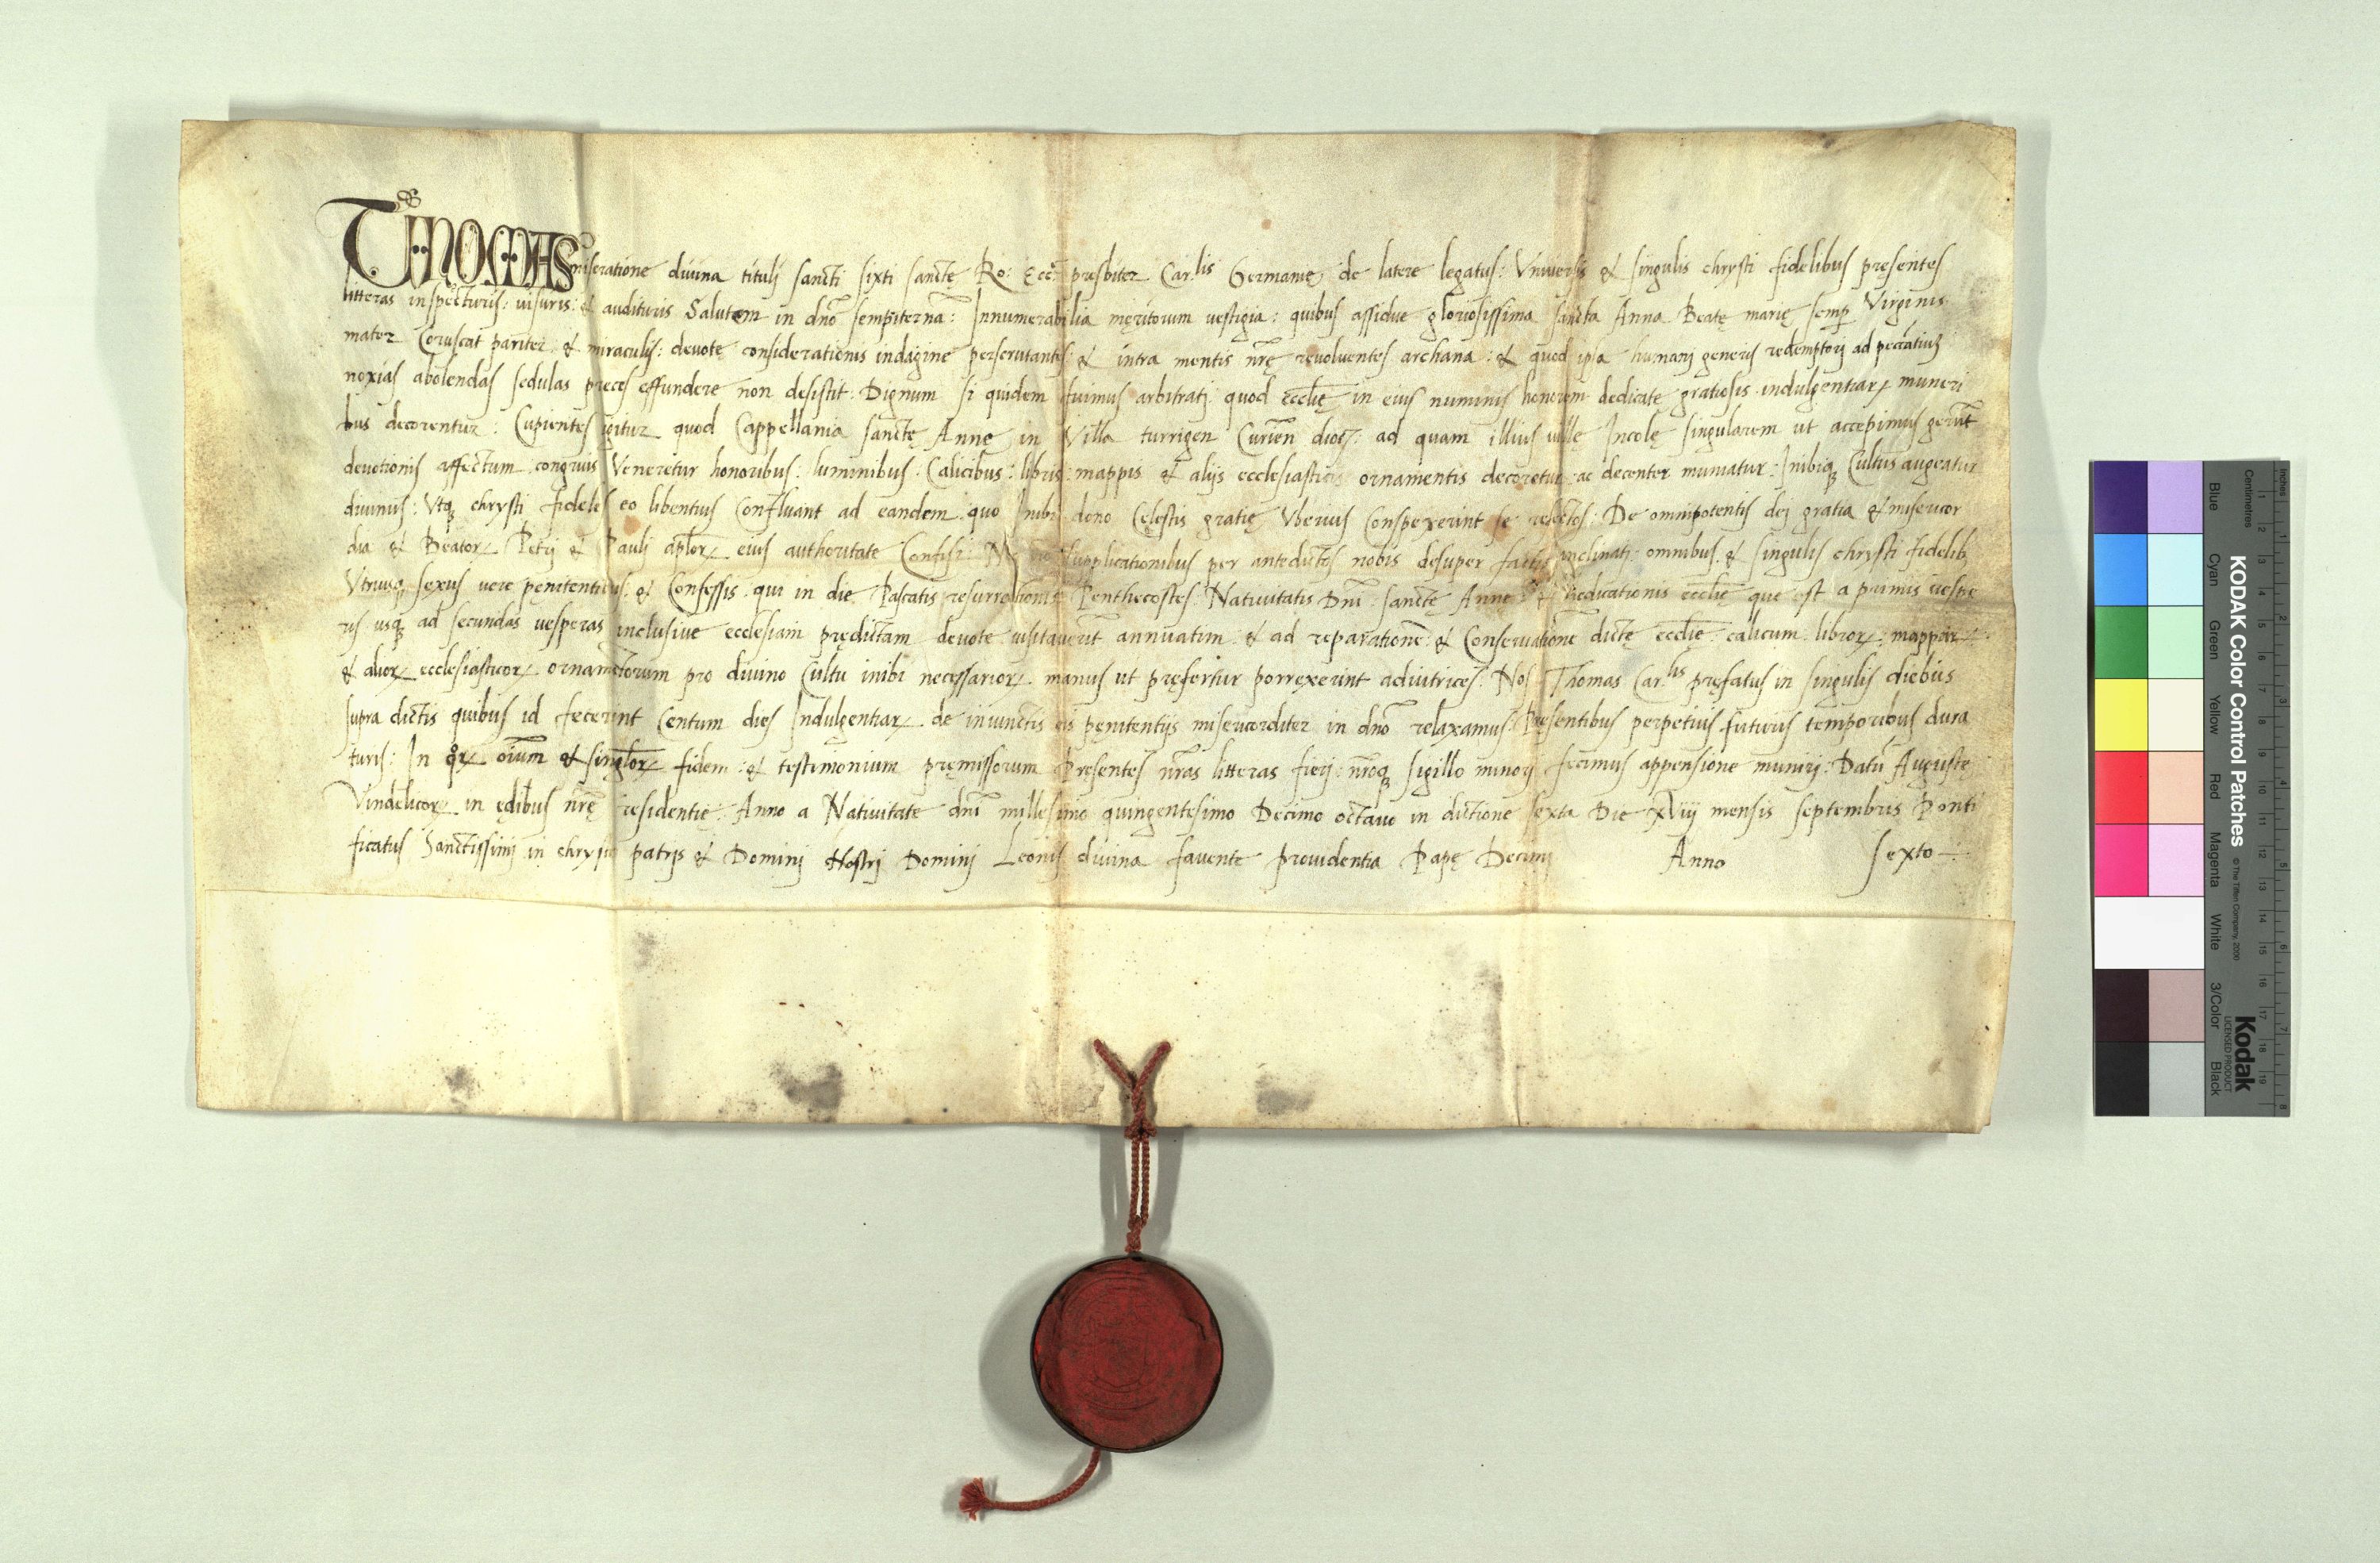 THOMAS miseratione divina tituli sancti sixti sanctę Ro: Eccẽ presbiter Car.lis Germanię de latere legatus: Vniversis & singulis chrysti fidelibus pręsentes
litteras inspecturis: visuris: & audituris Salutem in dño sempiternã: Innumerabilia męritorum vestigia: quibus assidue gloriosissima sancta Anna Beatę marię semp Virginis
mater Coruscat pariter & miraculis: devotę considerationis indagine perscrutantes: & intra mentis nrę revolventes archana: & quod ipsa humanj generis redemptorj ad peccatiuz
noxias abolendas sedulas preces effundere non desistit: Dignum si quidem fuimus arbitratj quod ecclię in eius numinis honorem dedicate gratiosis indulgentiarꝝ muneri
bus decorentur: Cupientes igitur quod Cappellania sanctę Annę in Villa turrigen Curień dioc: ad quam illius villę Incolę singularem ut accepimus gerũt
devotionis affectum congruis Veneretur honoribus: luminibus. Calicibus: libris: mappis & alijs ecclesiasticis ornamentis decoretur ac decenter muniatur: Inibiqꝫ Cultus augeatur
divinus: Vtqꝫ chrysti fideles eo libentius Confluant ad eandem quo Inibi dono Cęlestis gratię Vberius Conspexerint se refectos: De omnipotentis dej gratia & misericor
dia & Beatorꝝ Petrj & Paulj aplorꝝ eius authoritate Confisi: supplicationibus per antedictos nobis desuper factis inclinati: omnibus & singulis chrysti fidelibꝫ
Vtriusqꝫ sexus vere pęnitentibus: & Confessis qui in die Pascatis resurrectionis Penthecostes Nativitatis Dñi sanctę Annę & Dedicationis ecclię que est a primis vespe
ris usqꝫ ad secundas vesperas inclusive ecclesiam prędictam devote visitaverĩt annuatim & ad reparationẽ & Conservationẽ dictę ecclię calicum librorꝝ mapparꝝ
& aliorꝝ ecclesiasticorꝝ ornamẽtorum pro divino Cultu inibi necessariorꝝ manus ut pręfertur porrexerint adiutrices: Nos Thomas Car.lis pręfatus in singulis diebus
supra dictis quibus id fecerint Centum dies Indulgentiarꝝ de iniunctis eis pęnitentijs misericorditer in dño relaxamus: Pręsentibus perpetuis futuris temporibus dura
turis: In qꝝ oĩum & singlorꝝ fidem & testimonium pręmissorum Pręsentes nr̃as litteras fierj: nr̃oqꝫ sigillo minorj fecimus appensione munirj: Datũ Augustę
Vindelicorꝝ in ędibus nrę residentię. Anno a Nativitate dñi millesimo quingentesimo Decimo octavo in dictione sexta Die xViij mensis septembris Ponti
ficatus Sanctissimj in chrysto patris & Dominj Nostrj Dominj Leonis divina favente providentia Papę Decimj Anno sexto
Inches
Centimetres
KODAK Color Control Patches
© The Tiffen Company, 2000
Kodak
LICENSED PRODUCT
Blue Cyan Green Yellow Red Magenta White 3/Color Black